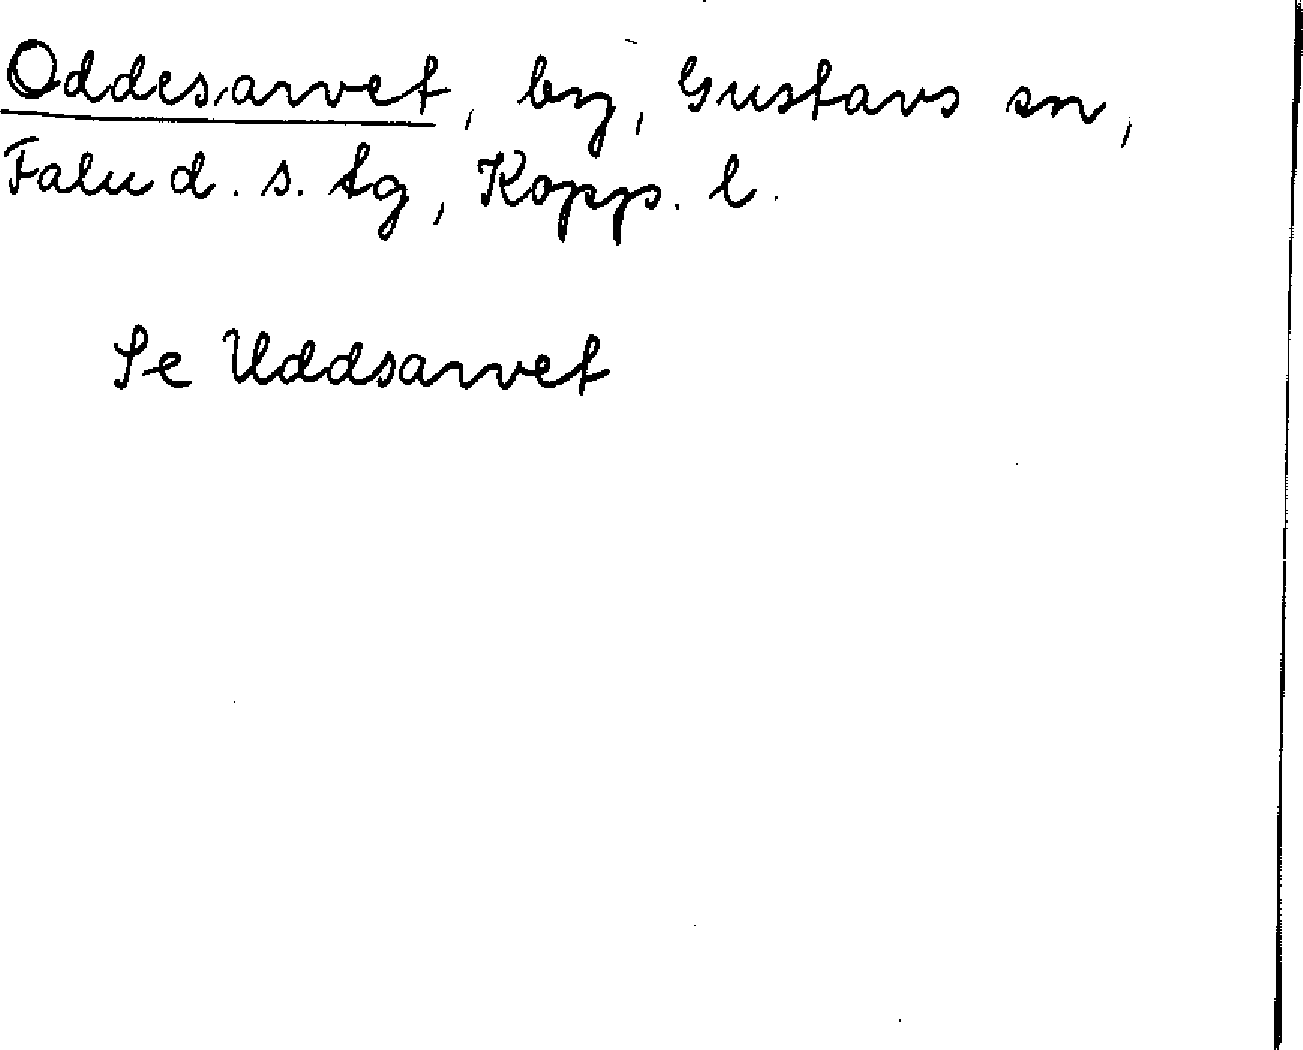 Oddesarvet, by, Gustavs sn,
Falu d. s. tg, Kopp. l.
Se Uddsarvet